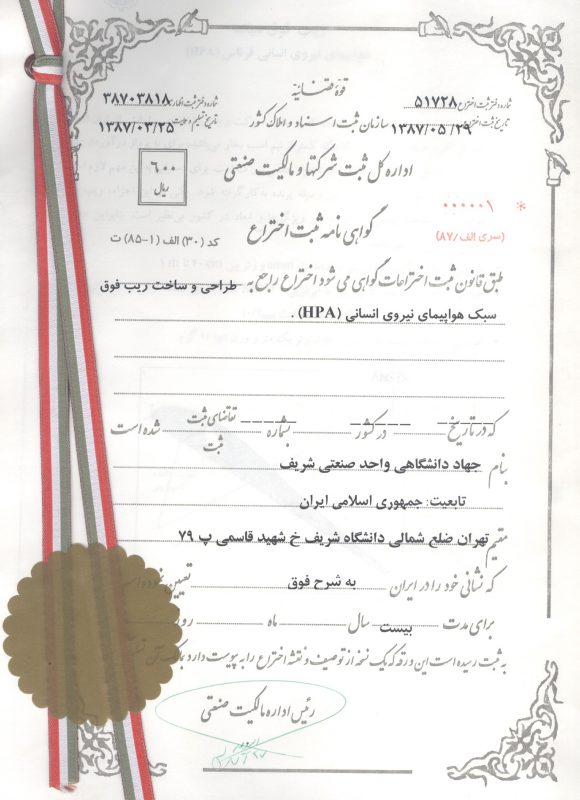 قوه قضائیه
شماره دفتر ثبت اختراع ۵۱۷۲۸
شماره دفتر ثبت اظهارنامه ۳۸۷۰۳۸۱۸
سازمان ثبت اسناد و املاک کشور
تاریخ ثبت اختراع ۱۳۸۷/۰۵/۲۹
تاریخ تسلیم ۱۳۸۷/۰۳/۲۵
اداره کل ثبت شرکتها و مالکیت صنعتی
۶۰۰
ریال
* ۰۰۰۰۰۱
(سری الف/۸۷)
گواهی نامه ثبت اختراع
کد (۳۰) الف (۱-۸۵) ت
طبق قانون ثبت اختراعات گواهی می شود اختراع راجع به طراحی و ساخت ریب فوق
سبک هواپیمای نیروی انسانی (HPA) .
که در تاریخ در کشور بشماره تقاضای ثبت شده است
ثبت
بنام جهاد دانشگاهی واحد صنعتی شریف
تابعیت: جمهوری اسلامی ایران
مقیم تهران ضلع شمالی دانشگاه شریف خ شهید قاسمی پ ۷۹
که نشانی خود را در ایران به شرح فوق تعیین
برای مدت بیست سال ماه روز
به ثبت رسیده است این ورقه که یک نسخه از توصیف و نقشه اختراع را به پیوست دارد
رئیس اداره مالکیت صنعتی